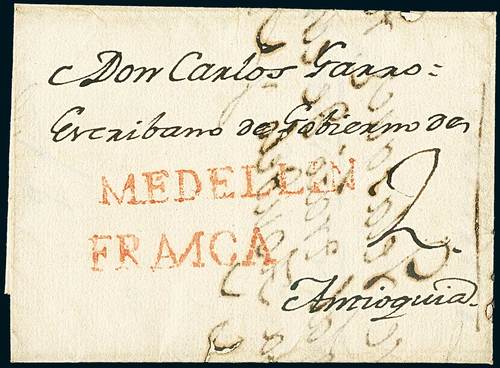 Don Carlos Garro:
Escribano de Gobierno de
MEDELLIN
FRANCA
2.
Antioquia.